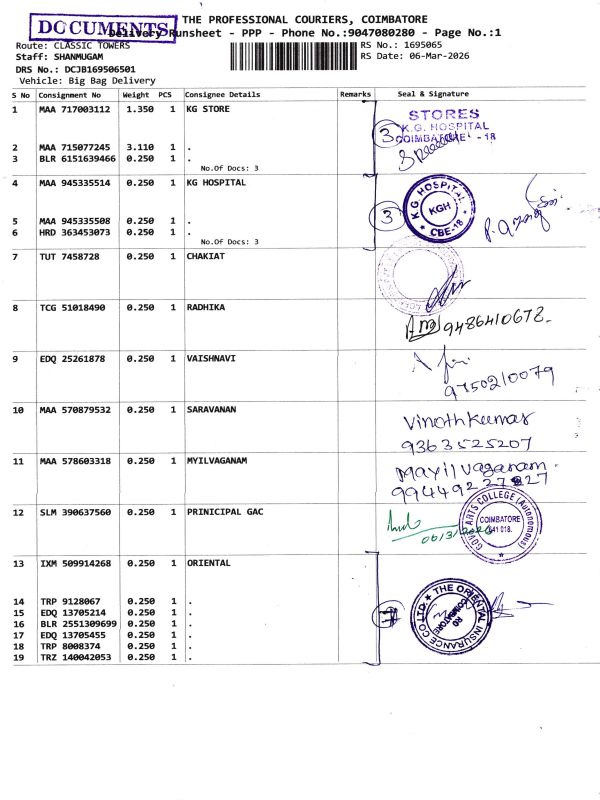 DOCUMENTS
THE PROFESSIONAL COURIERS, COIMBATORE
Delivery Runsheet - PPP - Phone No.:9047080280 - Page No.:1
Route: CLASSIC TOWERS
RS No.: 1695065
Staff: SHANMUGAM
RS Date: 06-Mar-2026
DRS No.: DCJB169506501
Vehicle: Big Bag Delivery
S No Consignment No Weight PCS Consignee Details Remarks Seal & Signature
1 MAA 717003112 1.350 1 KG STORE
STORES
K.G. HOSPITAL
COIMBATORE - 18
3
2 MAA 715077245 3.110 1 .
3 BLR 6151639466 0.250 1 .
No.Of Docs: 3
4 MAA 945335514 0.250 1 KG HOSPITAL
K.G. HOSPITAL
KGH
CBE-18
3
5 MAA 945335508 0.250 1 .
6 HRD 363453073 0.250 1 .
No.Of Docs: 3
7 TUT 7458728 0.250 1 CHAKIAT
8 TCG 51018490 0.250 1 RADHIKA
9486410678.
9 EDQ 25261878 0.250 1 VAISHNAVI
9750210079
10 MAA 570879532 0.250 1 SARAVANAN
Vinothkumar
9363525207
11 MAA 578603318 0.250 1 MYILVAGANAM
Mayilvaganam.
9944923 7827
12 SLM 390637560 0.250 1 PRINICIPAL GAC
GOVT ARTS COLLEGE (Autonomous)
COIMBATORE
641 018.
06/3/2026
13 IXM 509914268 0.250 1 ORIENTAL
THE ORIENTAL INSURANCE CO LTD
RO
COIMBATORE
7
14 TRP 9128067 0.250 1 .
15 EDQ 13705214 0.250 1 .
16 BLR 2551309699 0.250 1 .
17 EDQ 13705455 0.250 1 .
18 TRP 8008374 0.250 1 .
19 TRZ 140042053 0.250 1 .